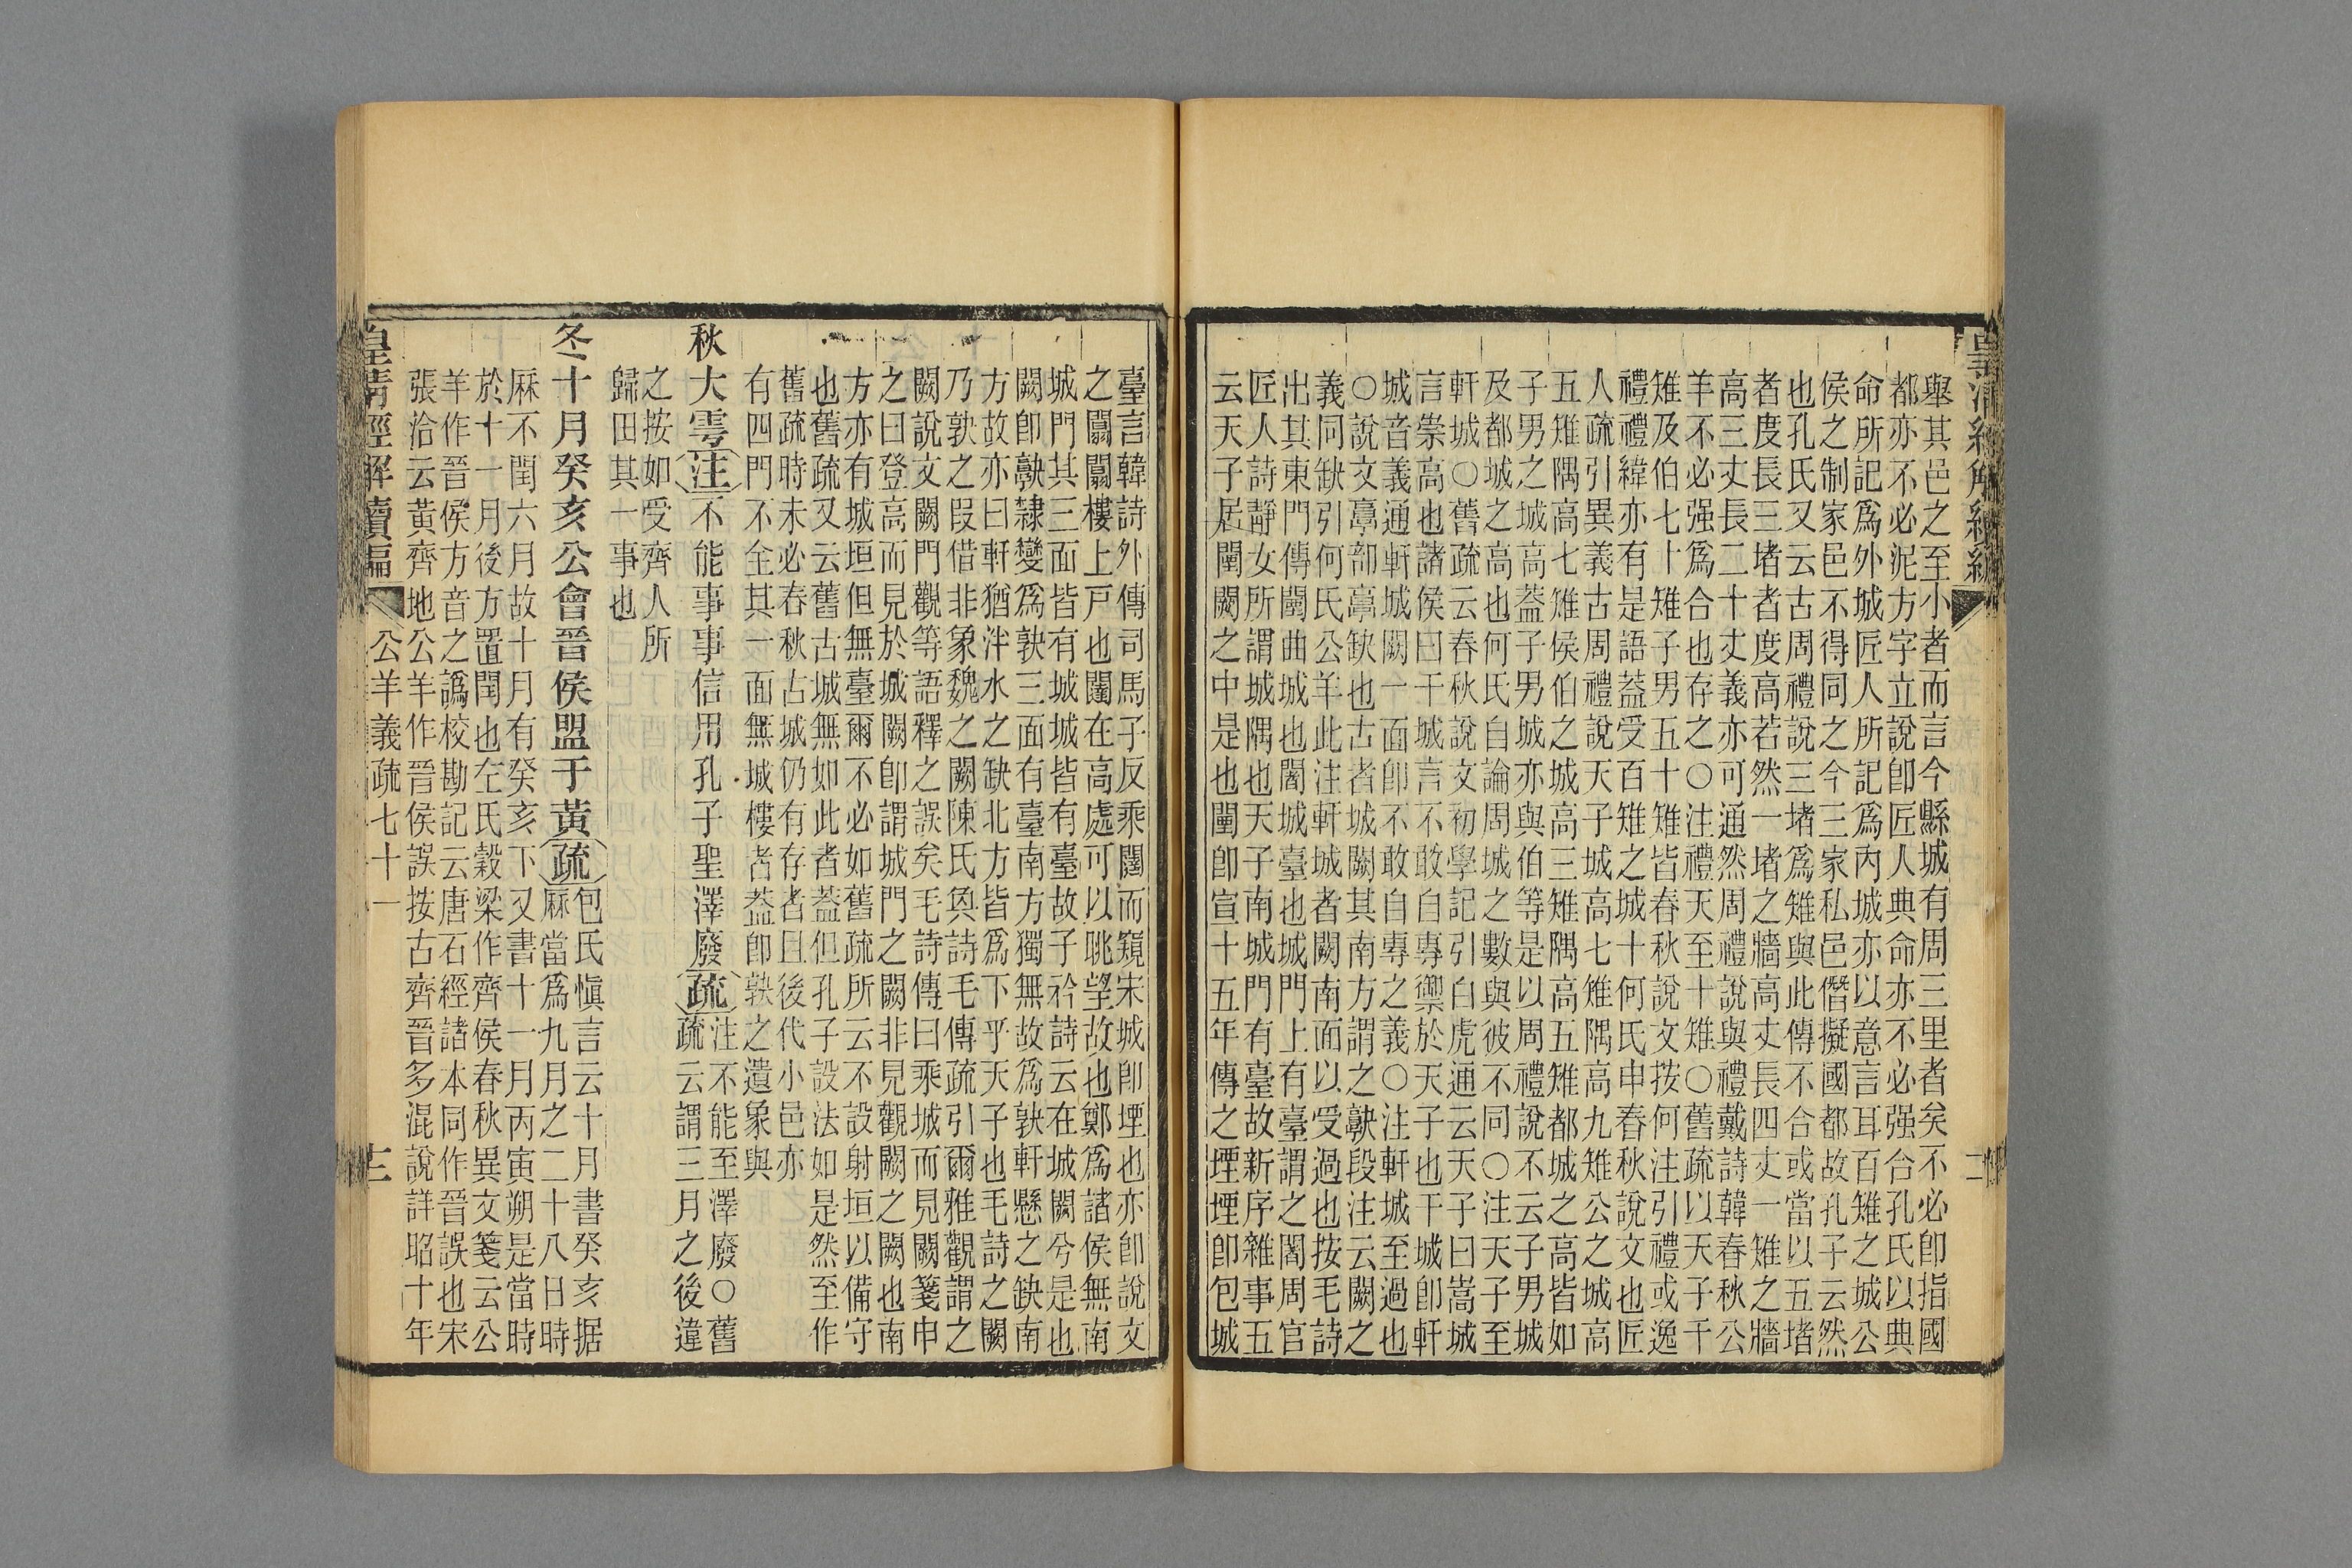 皇清經解續編
二
舉其邑之至小者而言今縣城有周三里者矣不必卽指國
都亦不必泥方字立說卽匠人典命亦不必强合孔氏以典
命所記爲外城匠人所記爲內城亦以意言耳百雉之城公
侯之制家邑不得同之今三家私邑僭擬國都故孔子云然
也孔氏又云古周禮說三堵爲雉與此傳不合或當以五堵
者度長三堵者度高若然一堵之牆高丈長四丈一雉之牆
高三丈長二十丈義亦可通然周禮說與禮戴詩韓春秋公
羊不必强爲合也存之〇注禮天至十雉〇舊疏以天子千
雉及伯七十雉子男五十雉皆春秋說文按何注引禮或逸
禮禮緯亦有是語葢受百雉之城十何氏申春秋說文也匠
人疏引異義古周禮說天子城高七雉隅高九雉公之城高
五雉隅高七雉侯伯之城高三雉隅高五雉都城之高皆如
子男之城高葢子男城亦與伯等是以周禮說不云子男城
及都城之高也何氏自論周城之數與彼不同〇注天子至
軒城〇舊疏云春秋說文初學記引白虎通云天子曰嵩城
言崇高也諸侯曰干城言不敢自專禦於天子也干城卽軒
城音義通軒城闕一面卽不敢自專之義〇注軒城至過也
〇說文𩫏部𩫏缺也古者城闕其南方謂之𩫏段注云闕之
義同缺引何氏公羊此注軒城者闕南面以受過也按毛詩
出其東門傳闉曲城也闍城臺也城門上有臺謂之闍周官
匠人詩靜女所謂城隅也天子南城門有臺故新序雜事五
云天子居闉闕之中是也闉卽宣十五年傳之堙堙卽包城
臺言韓詩外傳司馬子反乘闉而窺宋城卽堙也亦卽說文
之闠闠樓上戸也闉在高處可以眺望故也鄭爲諸侯無南
城門其三面皆有城城皆有臺故子衿詩云在城闕兮是也
闕卽𩫏隸變爲𡙇三面有臺南方獨無故爲𡙇軒懸之缺南
方故亦曰軒猶泮水之缺北方皆爲下乎天子也毛詩之闕
乃𡙇之叚借非象魏之闕陳氏奐詩毛傳疏引爾雅觀謂之
闕說文闕門觀等語釋之誤矣毛詩傳曰乘城而見闕箋申
之曰登高而見於城闕卽謂城門之闕非見觀闕之闕也南
方亦有城垣但無臺爾不必如舊疏所云不設射垣以備守
也舊疏又云舊古城無如此者葢但孔子設法如是然至作
舊疏時未必春秋古城仍有存者且後代小邑亦
有四門不全其一面無城樓者葢卽𡙇之遺象與
秋大雩注不能事事信用孔子聖澤廢疏注不能至澤廢〇舊
疏云謂三月之後違
之按如受齊人所
歸田其一事也
冬十月癸亥公會晉侯盟于黃疏包氏愼言云十月書癸亥据
厤當爲九月之二十八日時
厤不閏六月故十月有癸亥下又書十一月丙寅朔是當時
於十一月後方置閏也左氏穀梁作齊侯春秋異文箋云公
羊作晉侯方音之譌校勘記云唐石經諸本同作晉誤也宋
張洽云黃齊地公羊作晉侯誤按古齊晉多混說詳昭十年
皇清經解續編
公羊義疏七十一
十二